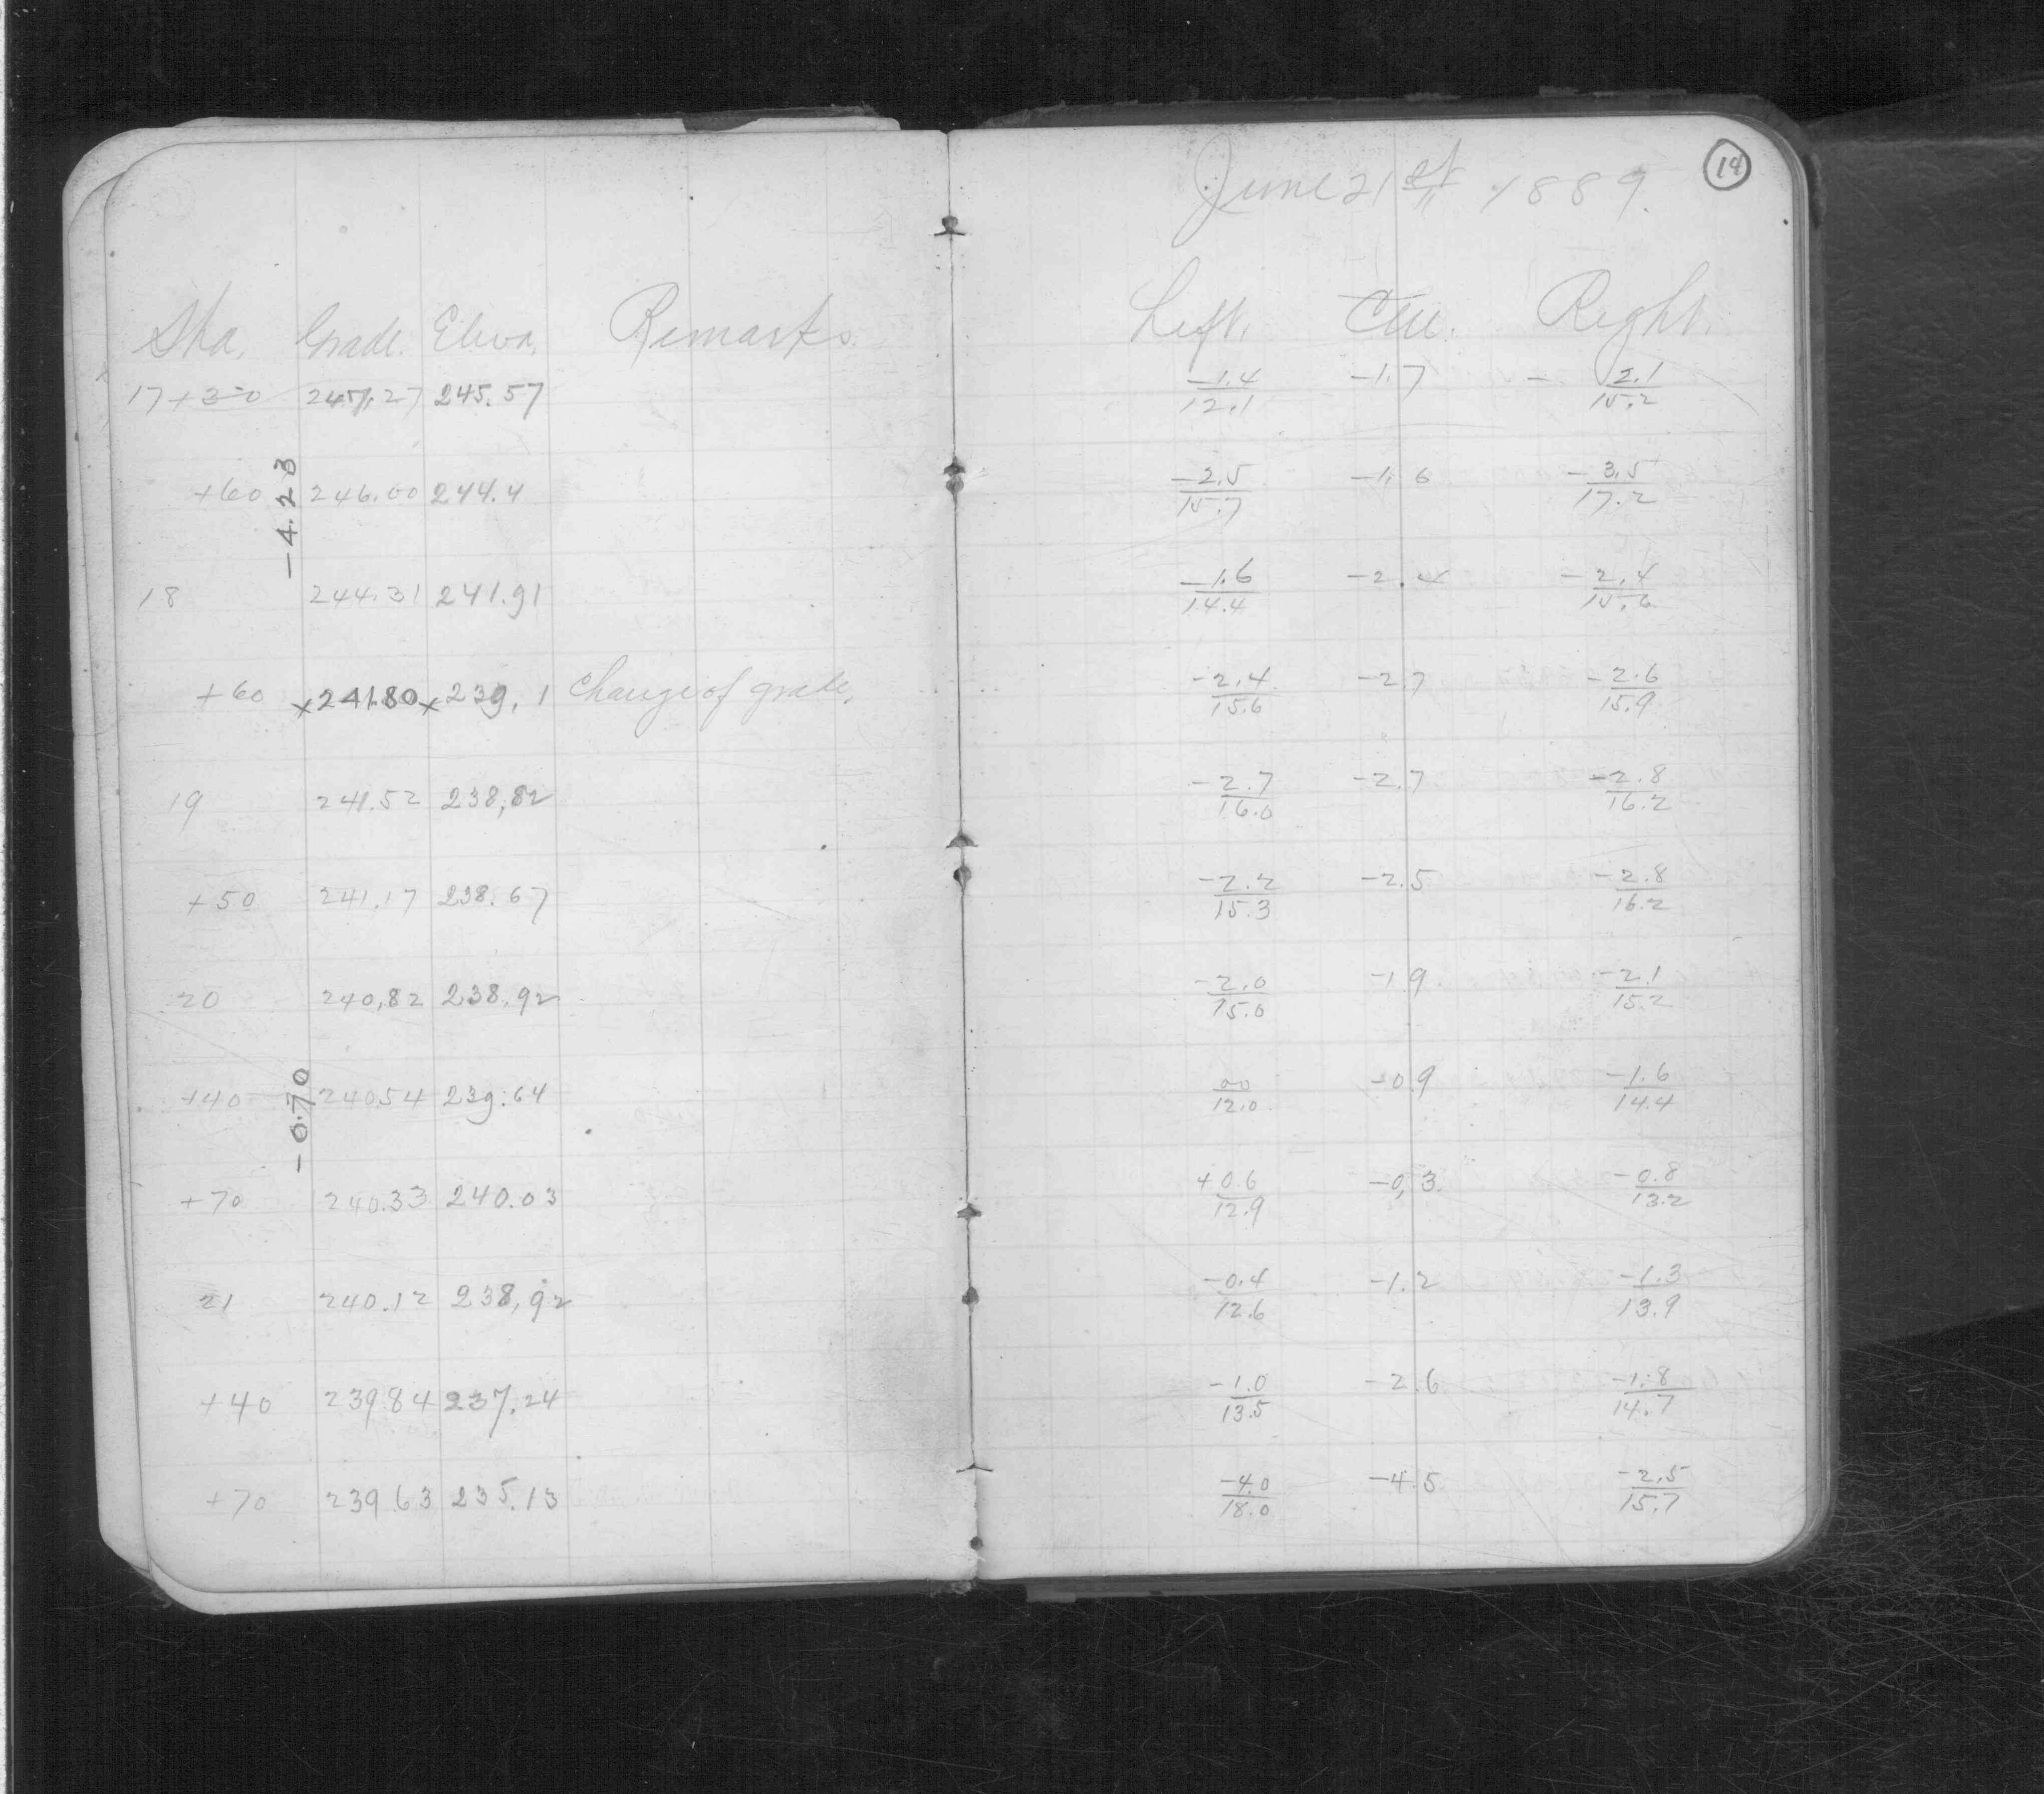 14
June 21st 1889.
Sta. Grade. Eleva. Remarks. Left. Cen. Right.
17+30 247.27 245.57 -1.4/12.1 -1.7 - 2.1/15.2
+60 246.00 244.4 -2.5/15.7 -1.6 -3.5/17.2
-4.23
18 244.31 241.91 -1.6/14.4 -2.4 -2.4/15.6
+60 x241.80 x239.1 Change of grade. -2.4/15.6 -2.7 -2.6/15.9
19 241.52 238.82 -2.7/16.0 -2.7 -2.8/16.2
+50 241.17 238.67 -2.2/15.3 -2.5 -2.8/16.2
20 240.82 238.92 -2.0/15.0 -1.9 -2.1/15.2
+40 240.54 239.64 00/12.0 -0.9 -1.6/14.4
-0.70
+70 240.33 240.03 +0.6/12.9 -0.3 -0.8/13.2
21 240.12 238.92 -0.4/12.6 -1.2 -1.3/13.9
+40 239.84 237.24 -1.0/13.5 -2.6 -1.8/14.7
+70 239.63 235.13 -4.0/18.0 -4.5 -2.5/15.7